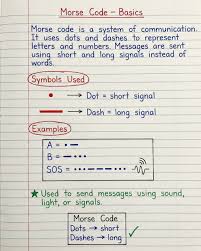 Morse Code – Basics
Morse code is a system of communication.
It uses dots and dashes to represent
letters and numbers. Messages are sent
using short and long signals instead of
words.
Symbols Used
• → Dot = short signal
— → Dash = long signal
Examples
A = •–
B = –•••
SOS = •••–––•••
★ Used to send messages using sound,
light, or signals.
Morse Code
Dots → short
Dashes → long ✓